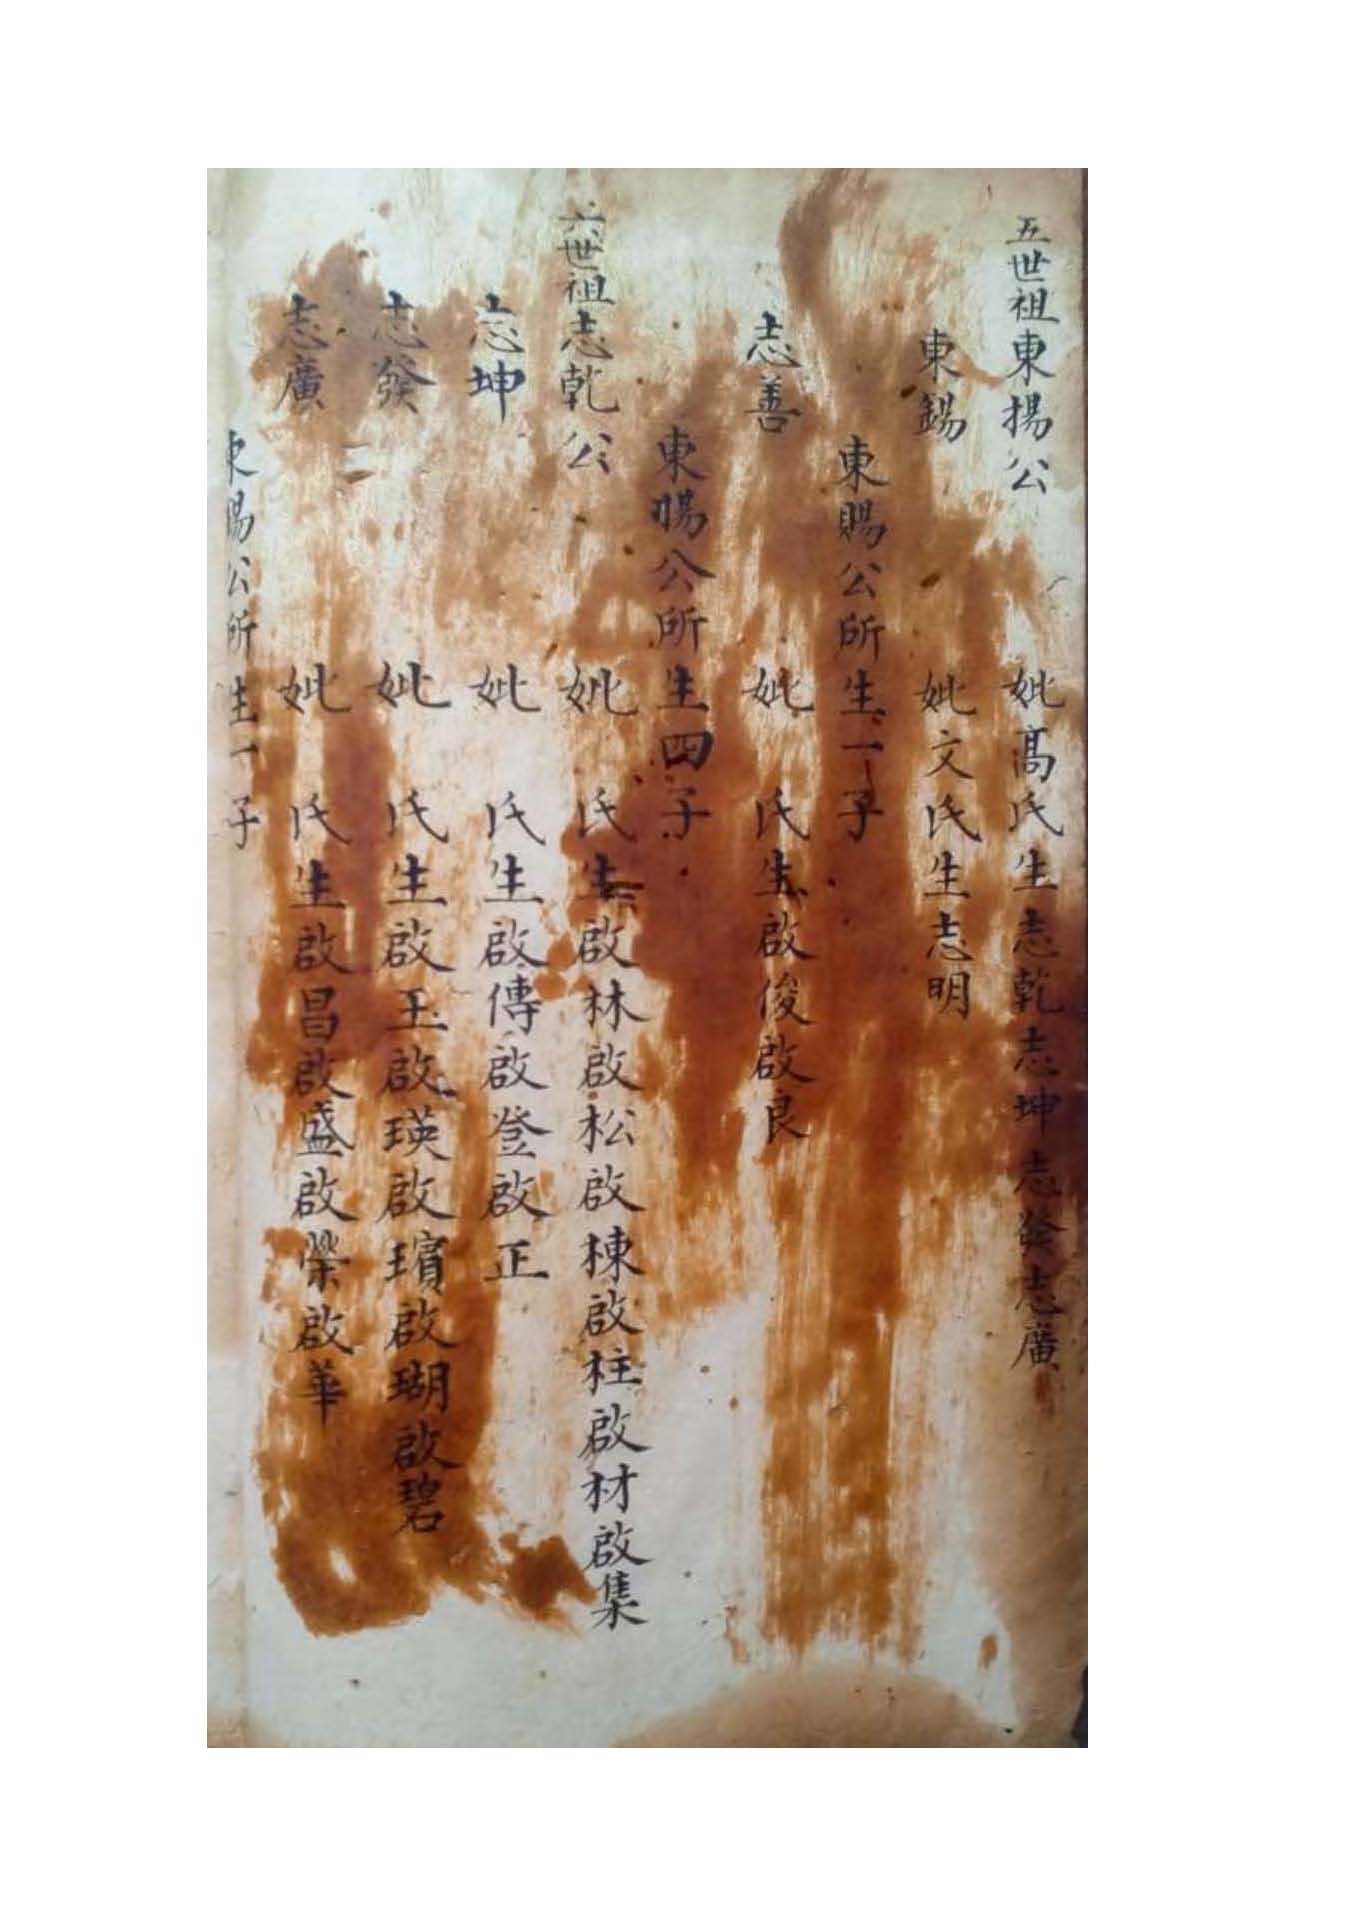 五世祖東揚公 妣高氏生志乾志坤志發志廣
東錫 妣文氏生志明
東賜公所生一子
志善 妣 氏生啟俊啟良
東暘公所生四子
六世祖志乾公 妣 氏生啟林啟松啟棟啟柱啟材啟集
志坤 妣 氏生啟傳啟登啟正
志發 妣 氏生啟玉啟瑛啟璸啟瑚啟碧
志廣 妣 氏生啟昌啟盛啟榮啟華
東賜公所生一子